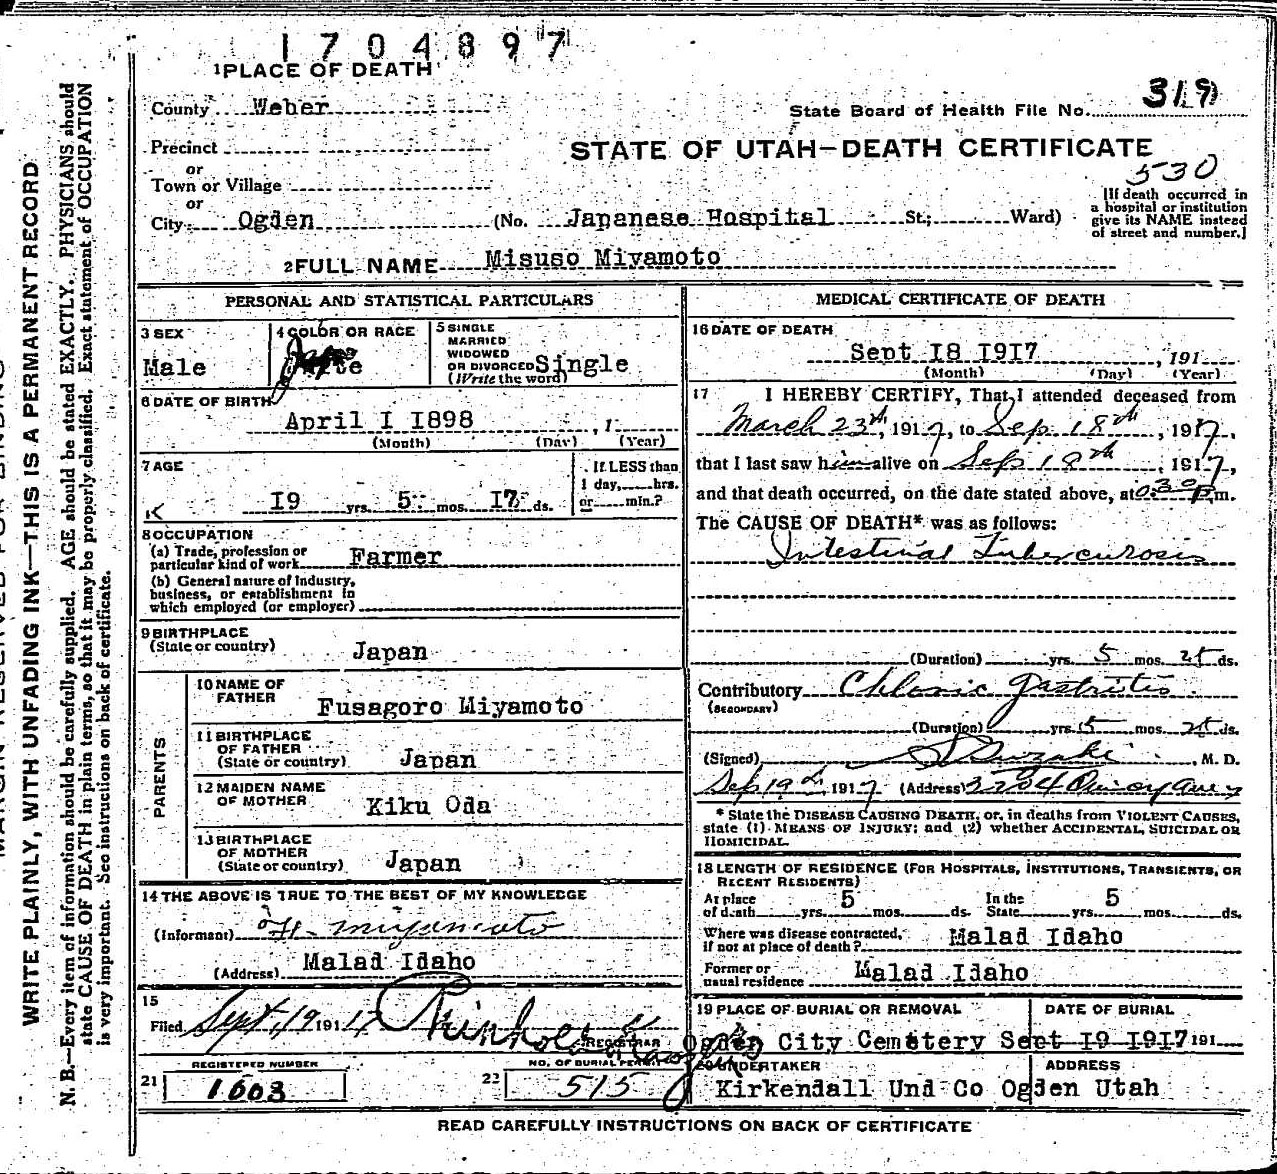 1704897
1 PLACE OF DEATH
County Weber
State Board of Health File No. 319
Precinct
or
STATE OF UTAH—DEATH CERTIFICATE
530
Town or Village
or
City Ogden (No. Japanese Hospital St.; Ward)
[If death occurred in
a hospital or institution
give its NAME instead
of street and number.]
2 FULL NAME Misuso Miyamoto
PERSONAL AND STATISTICAL PARTICULARS
3 SEX
Male
4 COLOR OR RACE
5 SINGLE
MARRIED
WIDOWED
OR DIVORCED Single
(Write the word)
6 DATE OF BIRTH
April I I898 , 1
(Month) (Day) (Year)
7 AGE
If LESS than
1 day, hrs.
I9 yrs. 5 mos. I7 ds. or min.?
8 OCCUPATION
(a) Trade, profession or
particular kind of work Farmer
(b) General nature of Industry,
business, or establishment in
which employed (or employer)
9 BIRTHPLACE
(State or country) Japan
PARENTS
10 NAME OF
FATHER Fusagoro Miyamoto
11 BIRTHPLACE
OF FATHER
(State or country) Japan
12 MAIDEN NAME
OF MOTHER Kiku Oda
13 BIRTHPLACE
OF MOTHER
(State or country) Japan
14 THE ABOVE IS TRUE TO THE BEST OF MY KNOWLEDGE
(Informant) H. Miyamoto
(Address) Malad Idaho
15
Filed Sept, 19 1917
REGISTRAR
REGISTERED NUMBER
21 1603
NO. OF BURIAL PERMIT
22 515
MEDICAL CERTIFICATE OF DEATH
16 DATE OF DEATH
Sept I8 I9I7 , 191
(Month) (Day) (Year)
17 I HEREBY CERTIFY, That I attended deceased from
March 23rd, 1917, to Sep. 18th, 1917,
that I last saw him alive on Sep 18th, 1917,
and that death occurred, on the date stated above, at 0.30 P.m.
The CAUSE OF DEATH* was as follows:
Intestinal Tubercurosis
(Duration) yrs. 5 mos. 25 ds.
Contributory Chlonic gastritis
(SECONDARY)
(Duration) yrs. 5 mos. 25 ds.
(Signed) S Suzaki, M. D.
Sep 19th 1917 (Address)
* State the DISEASE CAUSING DEATH, or, in deaths from VIOLENT CAUSES,
state (1) MEANS OF INJURY; and (2) whether ACCIDENTAL, SUICIDAL OR
HOMICIDAL.
18 LENGTH OF RESIDENCE (FOR HOSPITALS, INSTITUTIONS, TRANSIENTS, OR
RECENT RESIDENTS)
At place
of death yrs. 5 mos. ds. In the State yrs. 5 mos. ds.
Where was disease contracted,
if not at place of death? Malad Idaho
Former or
usual residence Malad Idaho
19 PLACE OF BURIAL OR REMOVAL
DATE OF BURIAL
Ogden City Cemetery Sept I9 I9I7 191
20 UNDERTAKER
ADDRESS
Kirkendall Und Co Ogden Utah
READ CAREFULLY INSTRUCTIONS ON BACK OF CERTIFICATE
WRITE PLAINLY, WITH UNFADING INK—THIS IS A PERMANENT RECORD
N. B.—Every item of information should be carefully supplied. AGE should be stated EXACTLY. PHYSICIANS should
state CAUSE OF DEATH in plain terms, so that it may be properly classified. Exact statement of OCCUPATION
is very important. See instructions on back of certificate.